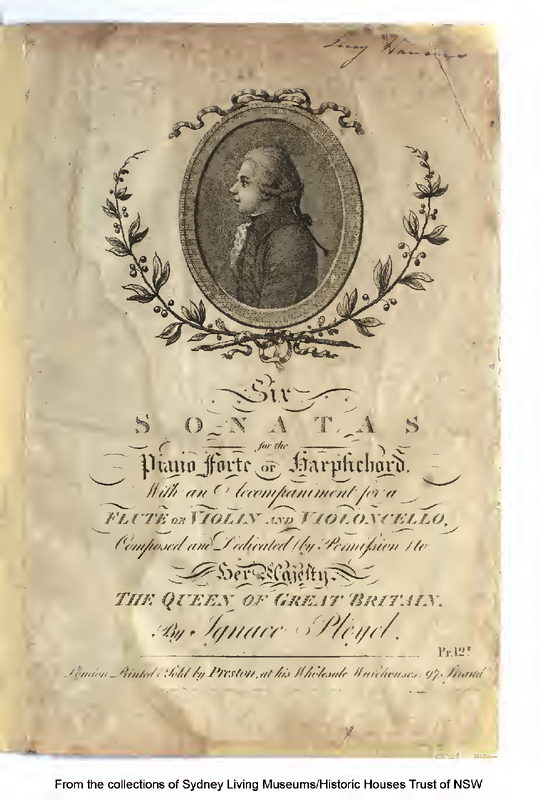 Lucy
Six
SONATAS
for the
Piano Forte or Harpsichord.
With an Accompaniment for a
FLUTE OR VIOLIN AND VIOLONCELLO,
Composed and Dedicated (by Permission) to
Her Majesty.
THE QUEEN OF GREAT BRITAIN.
By Ignace Pleyel.
Pr. 12s
London Printed & Sold by Preston, at his Wholesale Warehouses, 97, Strand
From the collections of Sydney Living Museums/Historic Houses Trust of NSW